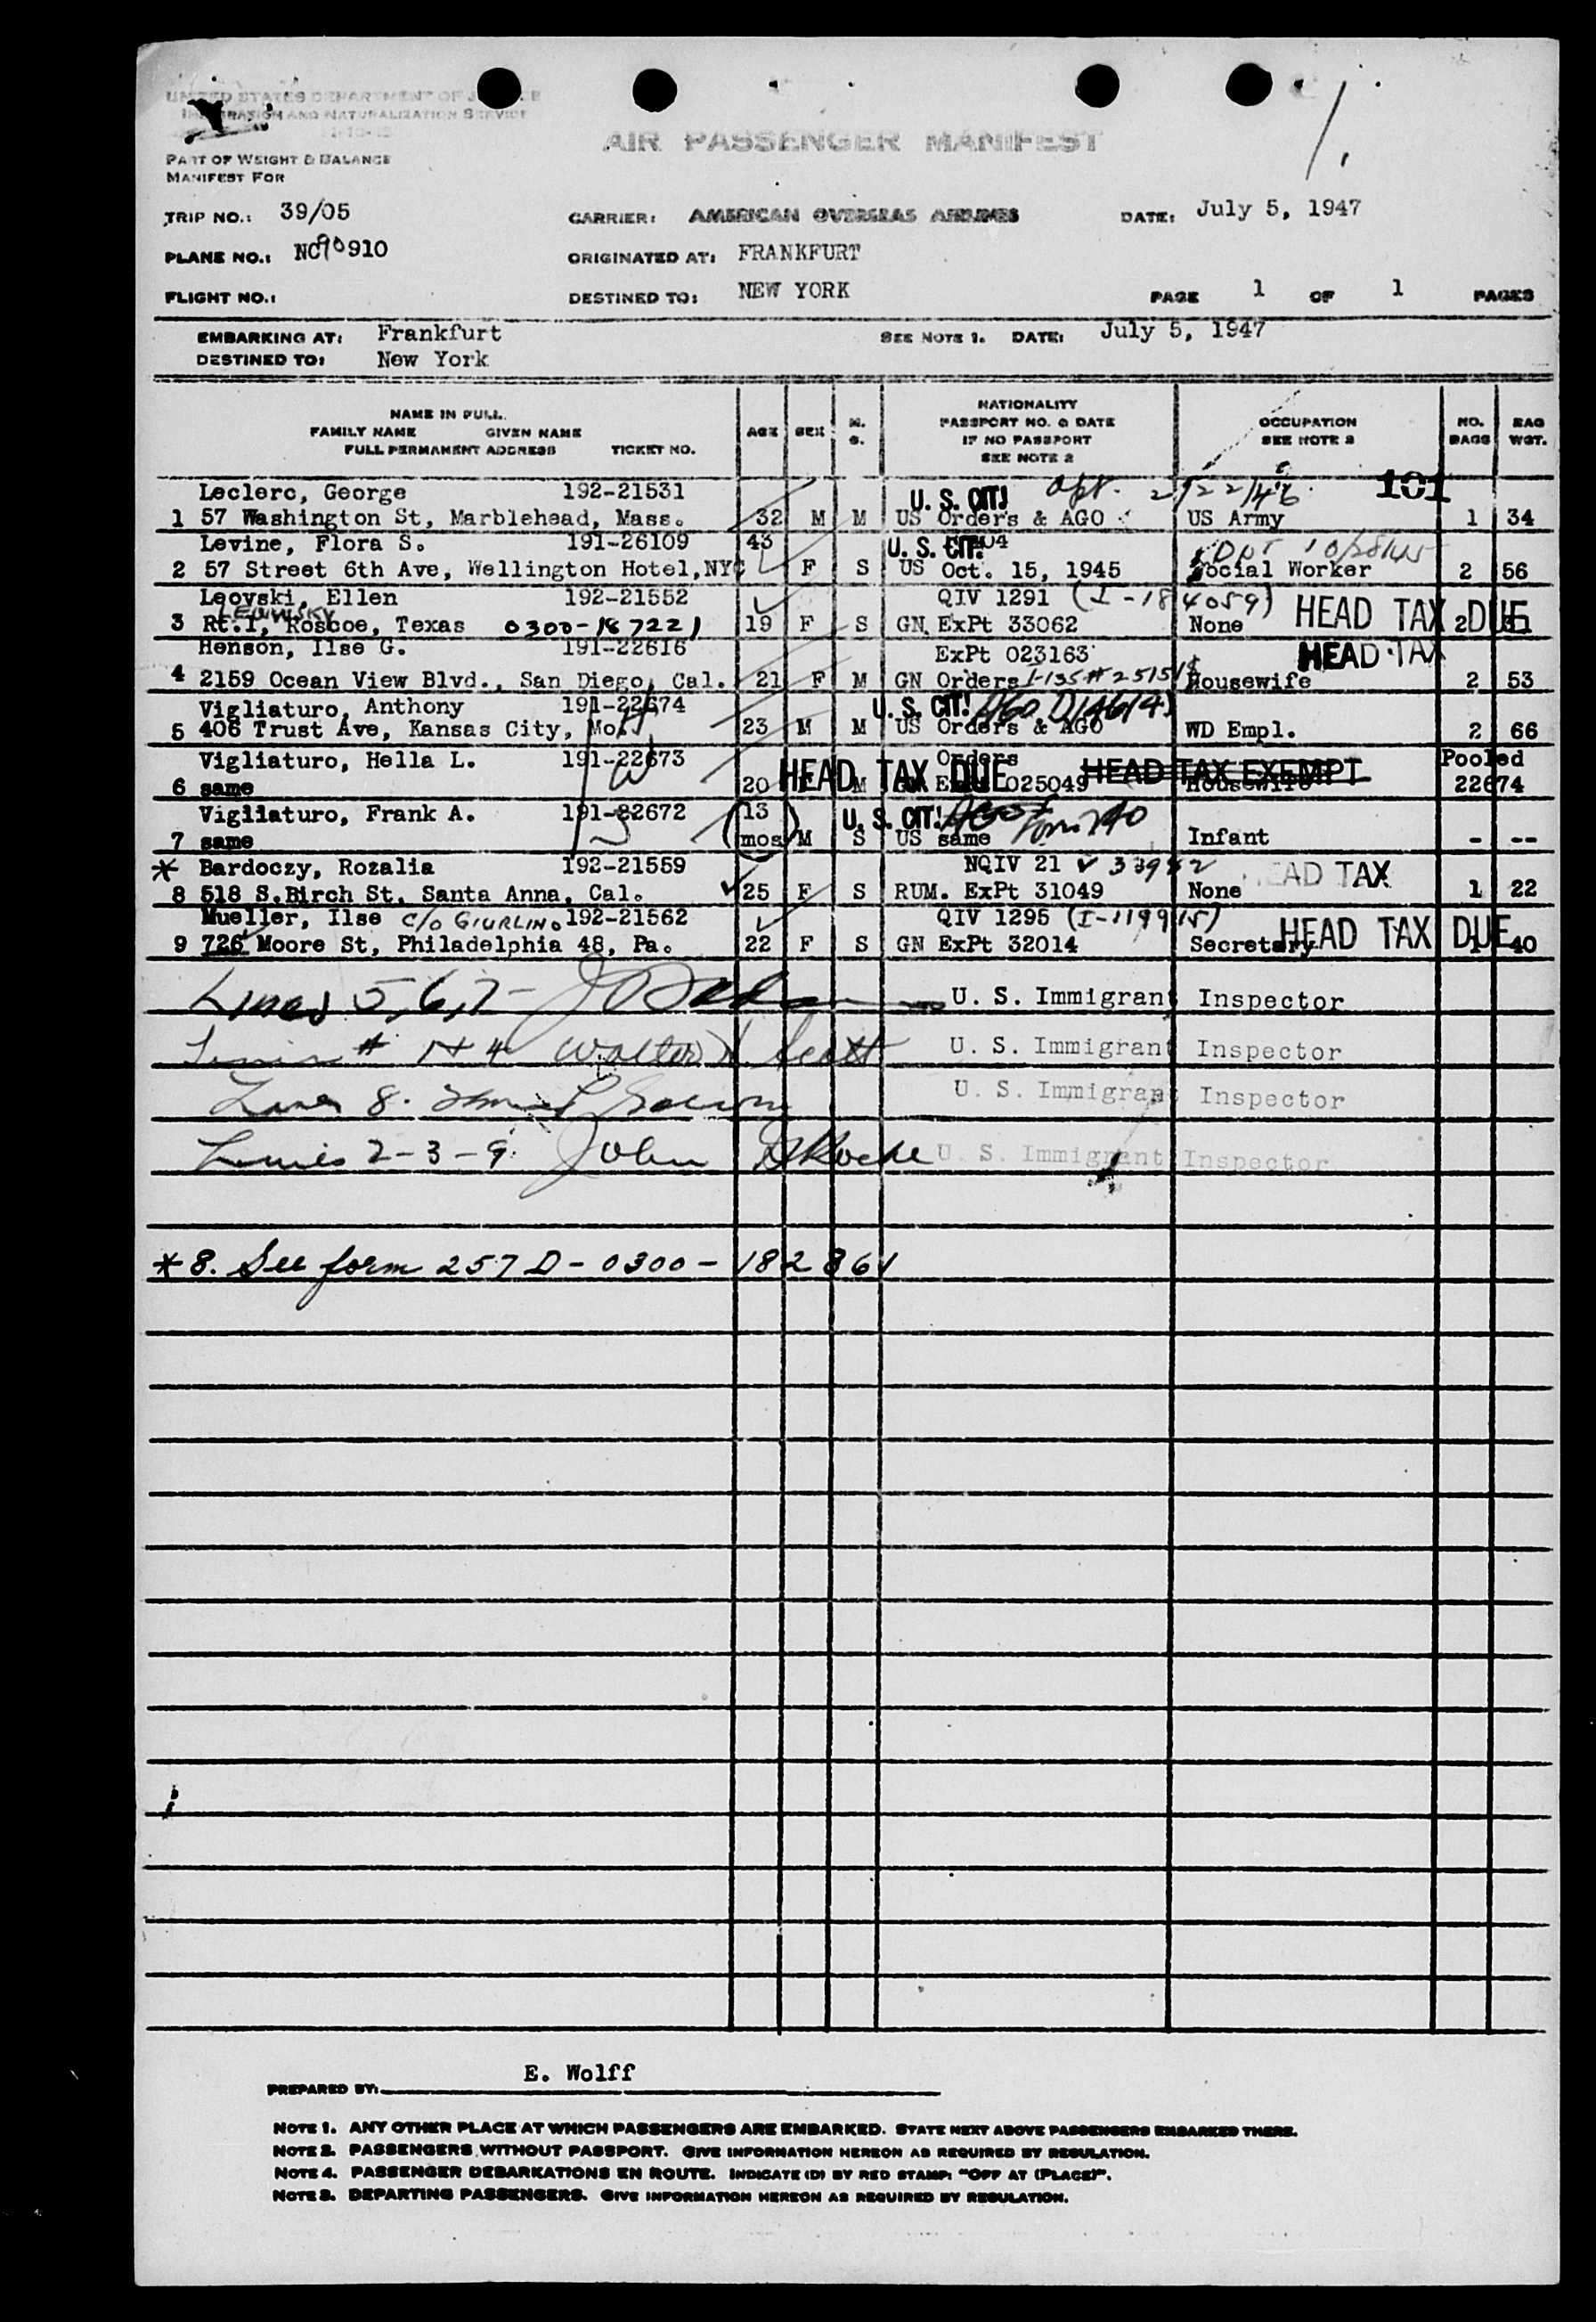 UNITED STATES DEPARTMENT OF JUSTICE
IMMIGRATION AND NATURALIZATION SERVICE
AIR PASSENGER MANIFEST
PART OF WEIGHT & BALANCE
MANIFEST FOR
TRIP NO.: 39/05 CARRIER: AMERICAN OVERSEAS AIRLINES DATE: July 5, 1947
PLANE NO.: NC90910 ORIGINATED AT: FRANKFURT
FLIGHT NO.: DESTINED TO: NEW YORK PAGE 1 OF 1 PAGES
EMBARKING AT: Frankfurt SEE NOTE 1. DATE: July 5, 1947
DESTINED TO: New York
NAME IN FULL
FAMILY NAME GIVEN NAME
FULL PERMANENT ADDRESS TICKET NO.
AGE SEX M. S.
NATIONALITY
PASSPORT NO. & DATE
IF NO PASSPORT
SEE NOTE 2
OCCUPATION
SEE NOTE 3
NO. BAGS
BAG WGT.
101
Leclerc, George 192-21531 U. S. CIT. 2/22/46
1 57 Washington St, Marblehead, Mass. 32 M M US Orders & AGO US Army 1 34
Levine, Flora S. 191-26109 43 U. S. CIT. 10/28/45
2 57 Street 6th Ave, Wellington Hotel,NYC F S US Oct. 15, 1945 Social Worker 2 56
Leovski, Ellen 192-21552 QIV 1291 (I-184059) HEAD TAX DUE
3 Rt.1, Roscoe, Texas 0300-187221 19 F S GN ExPt 33062 None 2 31
Henson, Ilse G. 191-22616 ExPt 023163 HEAD TAX
4 2159 Ocean View Blvd., San Diego, Cal. 21 F M GN Orders Housewife 2 53
Vigliaturo, Anthony 191-22674 U. S. CIT.
5 406 Trust Ave, Kansas City, Mo. 23 M M US Orders & AGO WD Empl. 2 66
Vigliaturo, Hella L. 191-22673 Orders HEAD TAX DUE HEAD TAX EXEMPT Pooled
6 same 20 M 025049 Housewife 22674
Vigliaturo, Frank A. 191-22672 (13 U. S. CIT.
7 same mos) M S US same Infant - --
* Bardoczy, Rozalia 192-21559 NQIV 21 HEAD TAX
8 518 S.Birch St, Santa Anna, Cal. 25 F S RUM. ExPt 31049 None 1 22
Mueller, Ilse c/o GIURLINO 192-21562 QIV 1295 (I-119915) HEAD TAX DUE
9 726 Moore St, Philadelphia 48, Pa. 22 F S GN ExPt 32014 Secretary 1 40
Lines 5,6,7- U. S. Immigrant Inspector
# 1+4 Walter Scott U. S. Immigrant Inspector
Line 8. U. S. Immigrant Inspector
Lines 2-3-9. John U. S. Immigrant Inspector
*8. See form 257D-0300-182861
PREPARED BY: E. Wolff
NOTE 1. ANY OTHER PLACE AT WHICH PASSENGERS ARE EMBARKED. STATE NEXT ABOVE PASSENGERS EMBARKED THERE.
NOTE 2. PASSENGERS WITHOUT PASSPORT. GIVE INFORMATION HEREON AS REQUIRED BY REGULATION.
NOTE 4. PASSENGER DEBARKATIONS EN ROUTE. INDICATE (D) BY RED STAMP: "OFF AT (PLACE)".
NOTE 3. DEPARTING PASSENGERS. GIVE INFORMATION HEREON AS REQUIRED BY REGULATION.